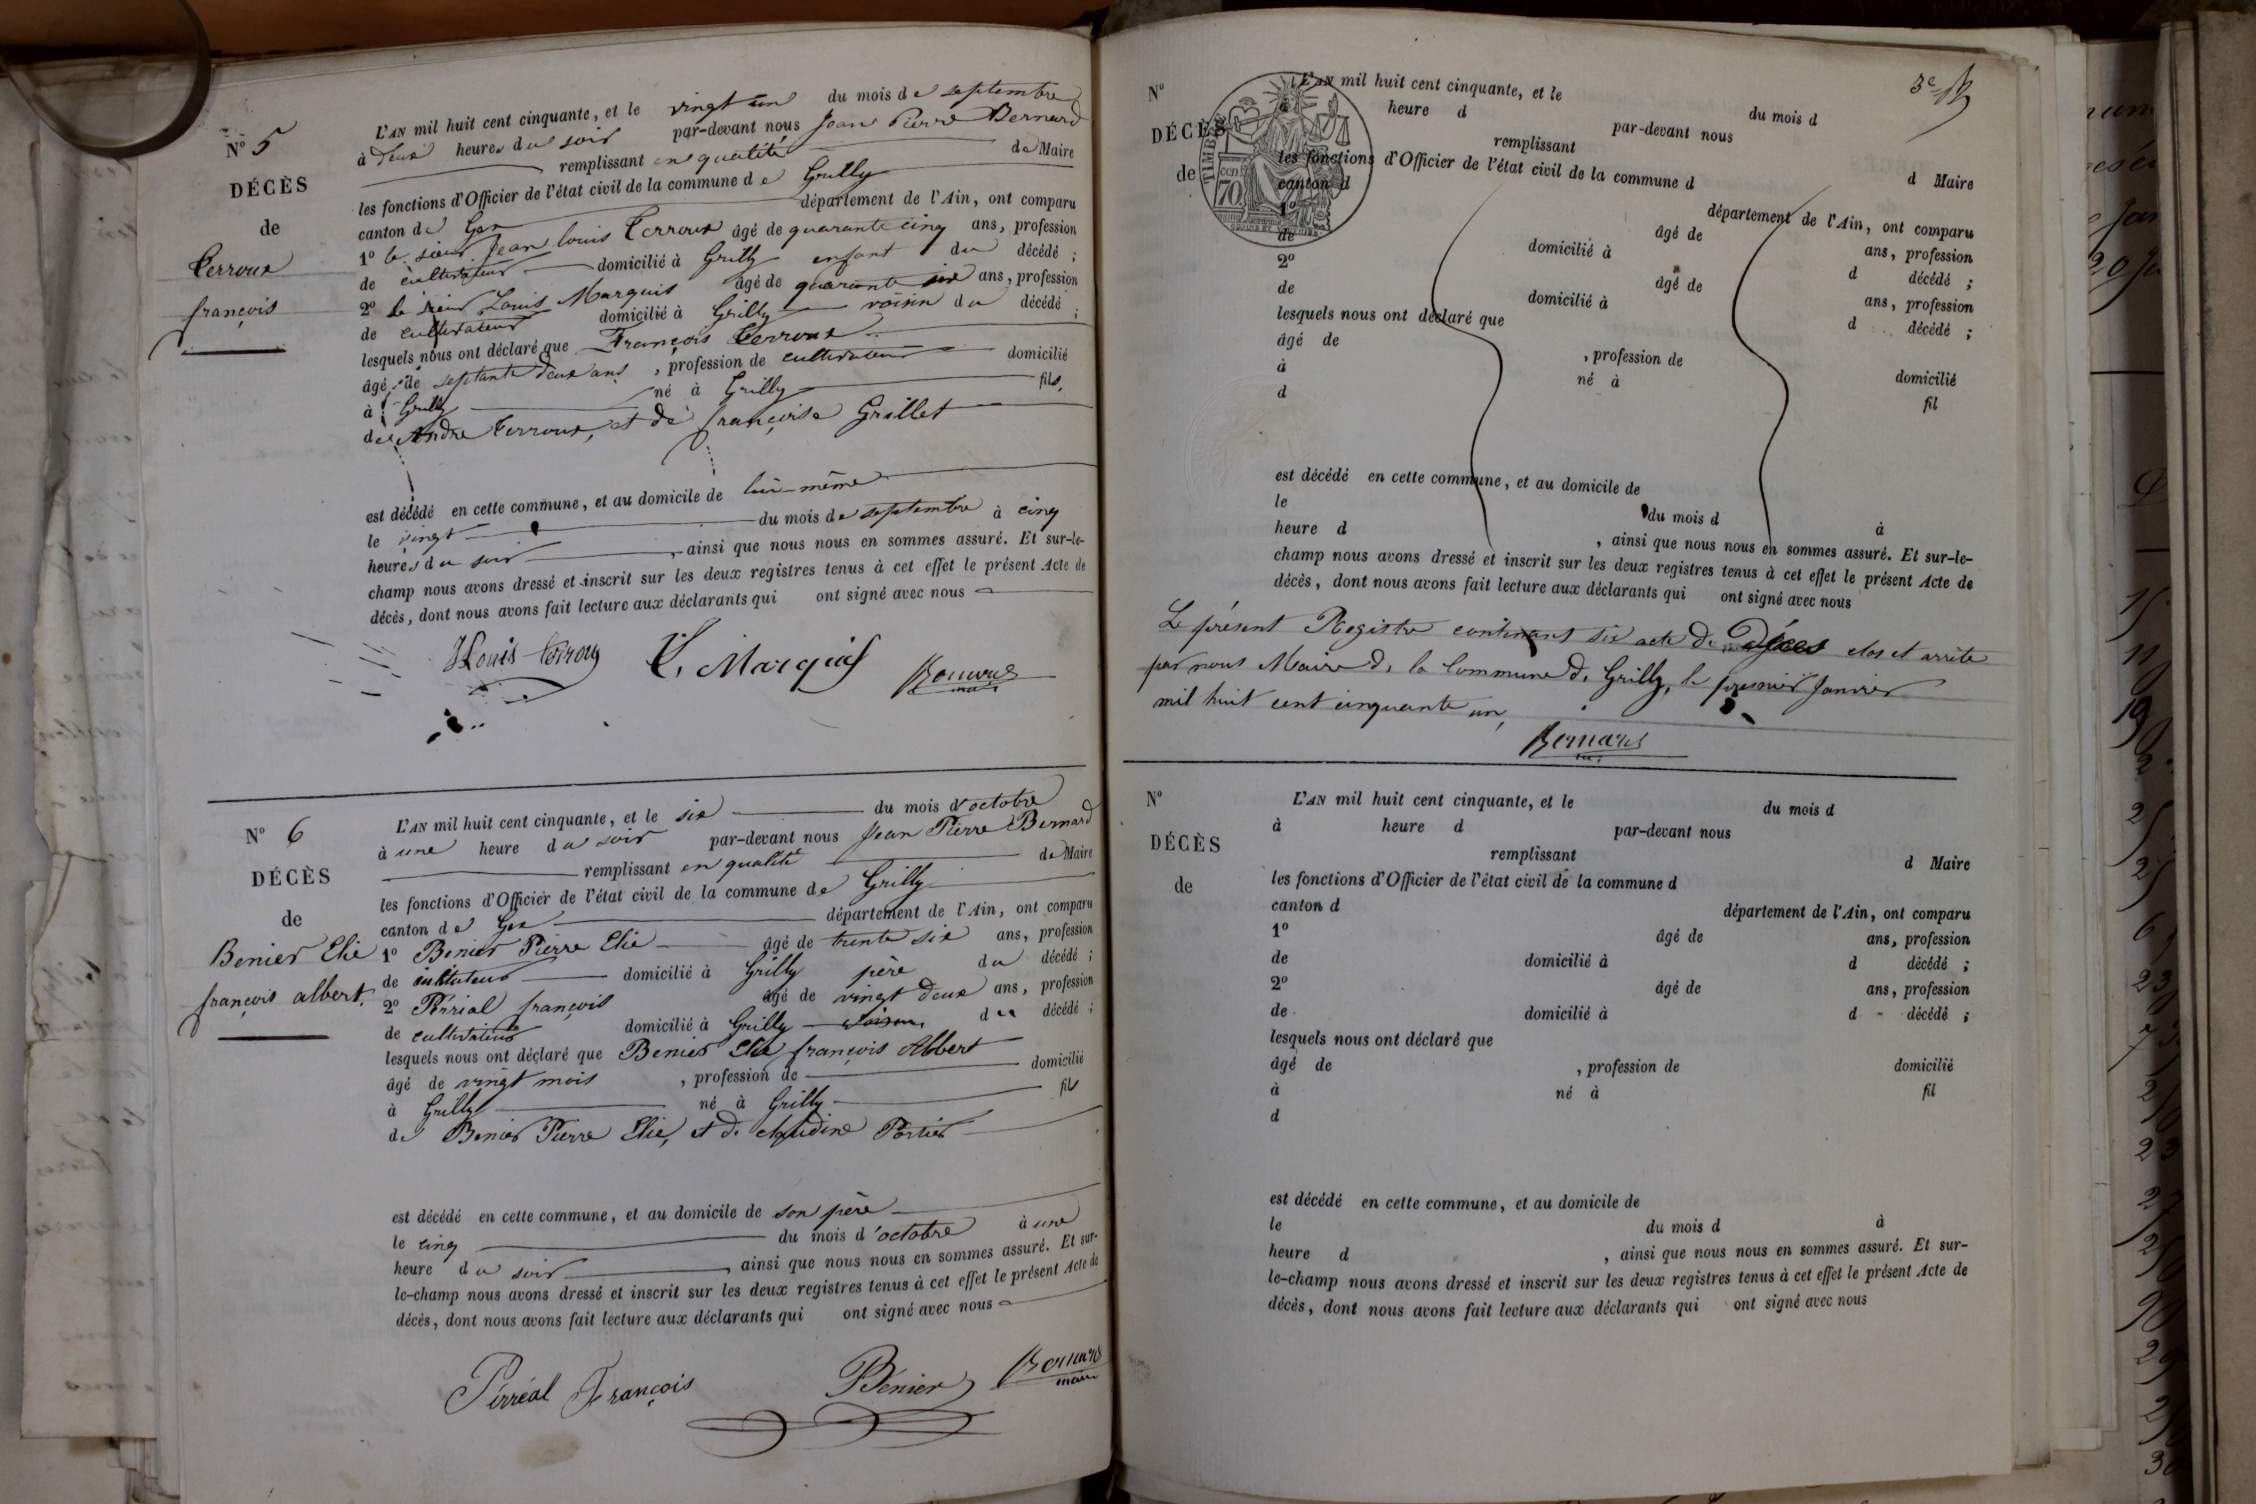 N° 5
DÉCÈS
de
Terroux
françois
L'AN mil huit cent cinquante, et le vingt un du mois de septembre
à deux heures du soir par-devant nous Jean Pierre Bernard
remplissant en qualité de Maire
les fonctions d'Officier de l'état civil de la commune de Grilly
canton de Gex département de l'Ain, ont comparu
1° le sieur Jean louis Terroux âgé de quarante cinq ans, profession
de cultivateur domicilié à Grilly enfant du décédé ;
2° le sieur Louis Marquis âgé de quarante six ans, profession
de cultivateur domicilié à Grilly voisin du décédé ;
lesquels nous ont déclaré que François Terroux
âgé de septante deux ans , profession de cultivateur domicilié
à Grilly né à Grilly fils,
de Andre Terroux, et de françoise Grillet
est décédé en cette commune, et au domicile de lui-même
le vingt du mois de septembre à cinq
heures du soir , ainsi que nous nous en sommes assuré. Et sur-le-
champ nous avons dressé et inscrit sur les deux registres tenus à cet effet le présent Acte de
décès, dont nous avons fait lecture aux déclarants qui ont signé avec nous
Louis Terroux L. Marquis Bernard
maire
N° 6
DÉCÈS
de
Benier Elie
françois albert.
L'AN mil huit cent cinquante, et le six du mois d'octobre
à une heure du soir par-devant nous Jean Pierre Bernard
remplissant en qualité de Maire
les fonctions d'Officier de l'état civil de la commune de Grilly
canton de Gex département de l'Ain, ont comparu
1° Benier Pierre Elie âgé de trente six ans, profession
de cultivateur domicilié à Grilly père du décédé ;
2° Périal françois âgé de vingt deux ans, profession
de cultivateur domicilié à Grilly voisin du décédé ;
lesquels nous ont déclaré que Benier Elie françois Albert
âgé de vingt mois , profession de domicilié
à Grilly né à Grilly fils
de Benier Pierre Elie, et de Claudine Portier
est décédé en cette commune, et au domicile de son père
le cinq du mois d'octobre à une
heure du soir , ainsi que nous nous en sommes assuré. Et sur-
le-champ nous avons dressé et inscrit sur les deux registres tenus à cet effet le présent Acte de
décès, dont nous avons fait lecture aux déclarants qui ont signé avec nous
Pérréal François Bénier Bernard
maire
3e
N°
DÉCÈS
de
TIMBRE
70 cen
L'AN mil huit cent cinquante, et le du mois d
à heure d par-devant nous
remplissant d Maire
les fonctions d'Officier de l'état civil de la commune d
canton d département de l'Ain, ont comparu
1° âgé de ans, profession
de domicilié à d décédé ;
2° âgé de ans, profession
de domicilié à d décédé ;
lesquels nous ont déclaré que
âgé de , profession de domicilié
à né à fil
d
est décédé en cette commune, et au domicile de
le du mois d à
heure d , ainsi que nous nous en sommes assuré. Et sur-le-
champ nous avons dressé et inscrit sur les deux registres tenus à cet effet le présent Acte de
décès, dont nous avons fait lecture aux déclarants qui ont signé avec nous
Le présent Registre contenant six acte de Déces clos et arrête
par nous Maire de la Commune de Grilly, le premier Janvier
mil huit cent cinquante un,
Bernard
N°
DÉCÈS
de
L'AN mil huit cent cinquante, et le du mois d
à heure d par-devant nous
remplissant d Maire
les fonctions d'Officier de l'état civil de la commune d
canton d département de l'Ain, ont comparu
1° âgé de ans, profession
de domicilié à d décédé ;
2° âgé de ans, profession
de domicilié à d décédé ;
lesquels nous ont déclaré que
âgé de , profession de domicilié
à né à fil
d
est décédé en cette commune, et au domicile de
le du mois d à
heure d , ainsi que nous nous en sommes assuré. Et sur-
le-champ nous avons dressé et inscrit sur les deux registres tenus à cet effet le présent Acte de
décès, dont nous avons fait lecture aux déclarants qui ont signé avec nous